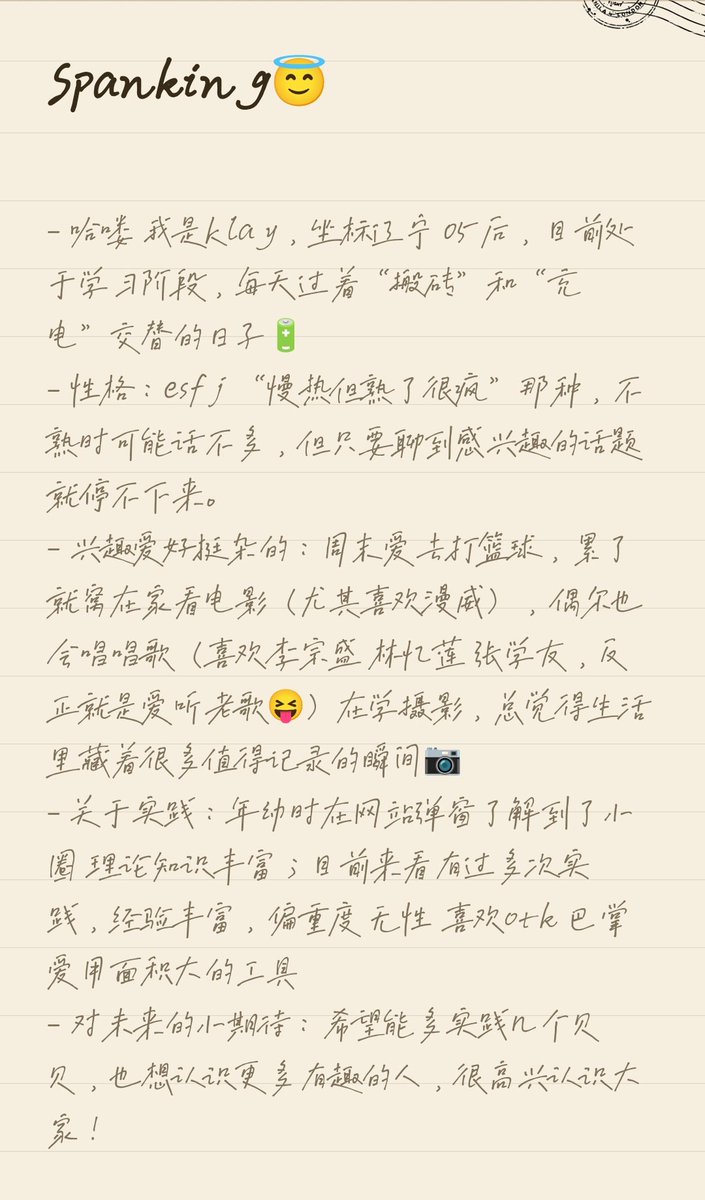 Spanking😇
- 哈喽 我是klay，坐标辽宁 05后，目前处
于学习阶段，每天过着“搬砖”和“充
电”交替的日子🔋
- 性格：esfj “慢热但熟了很疯”那种，不
熟时可能话不多，但只要聊到感兴趣的话题
就停不下来。
- 兴趣爱好挺杂的：周末爱去打篮球，累了
就窝在家看电影（尤其喜欢漫威），偶尔也
会唱唱歌（喜欢李宗盛 林忆莲 张学友，反
正就是爱听老歌😝）在学摄影，总觉得生活
里藏着很多值得记录的瞬间📷
- 关于实践：年幼时在网站弹窗了解到了小
圈 理论知识丰富；目前来看有过多次实
践，经验丰富，偏重度 无性 喜欢otk 巴掌
爱用面积大的工具
- 对未来的小期待：希望能多实践几个贝
贝，也想认识更多有趣的人，很高兴认识大
家！